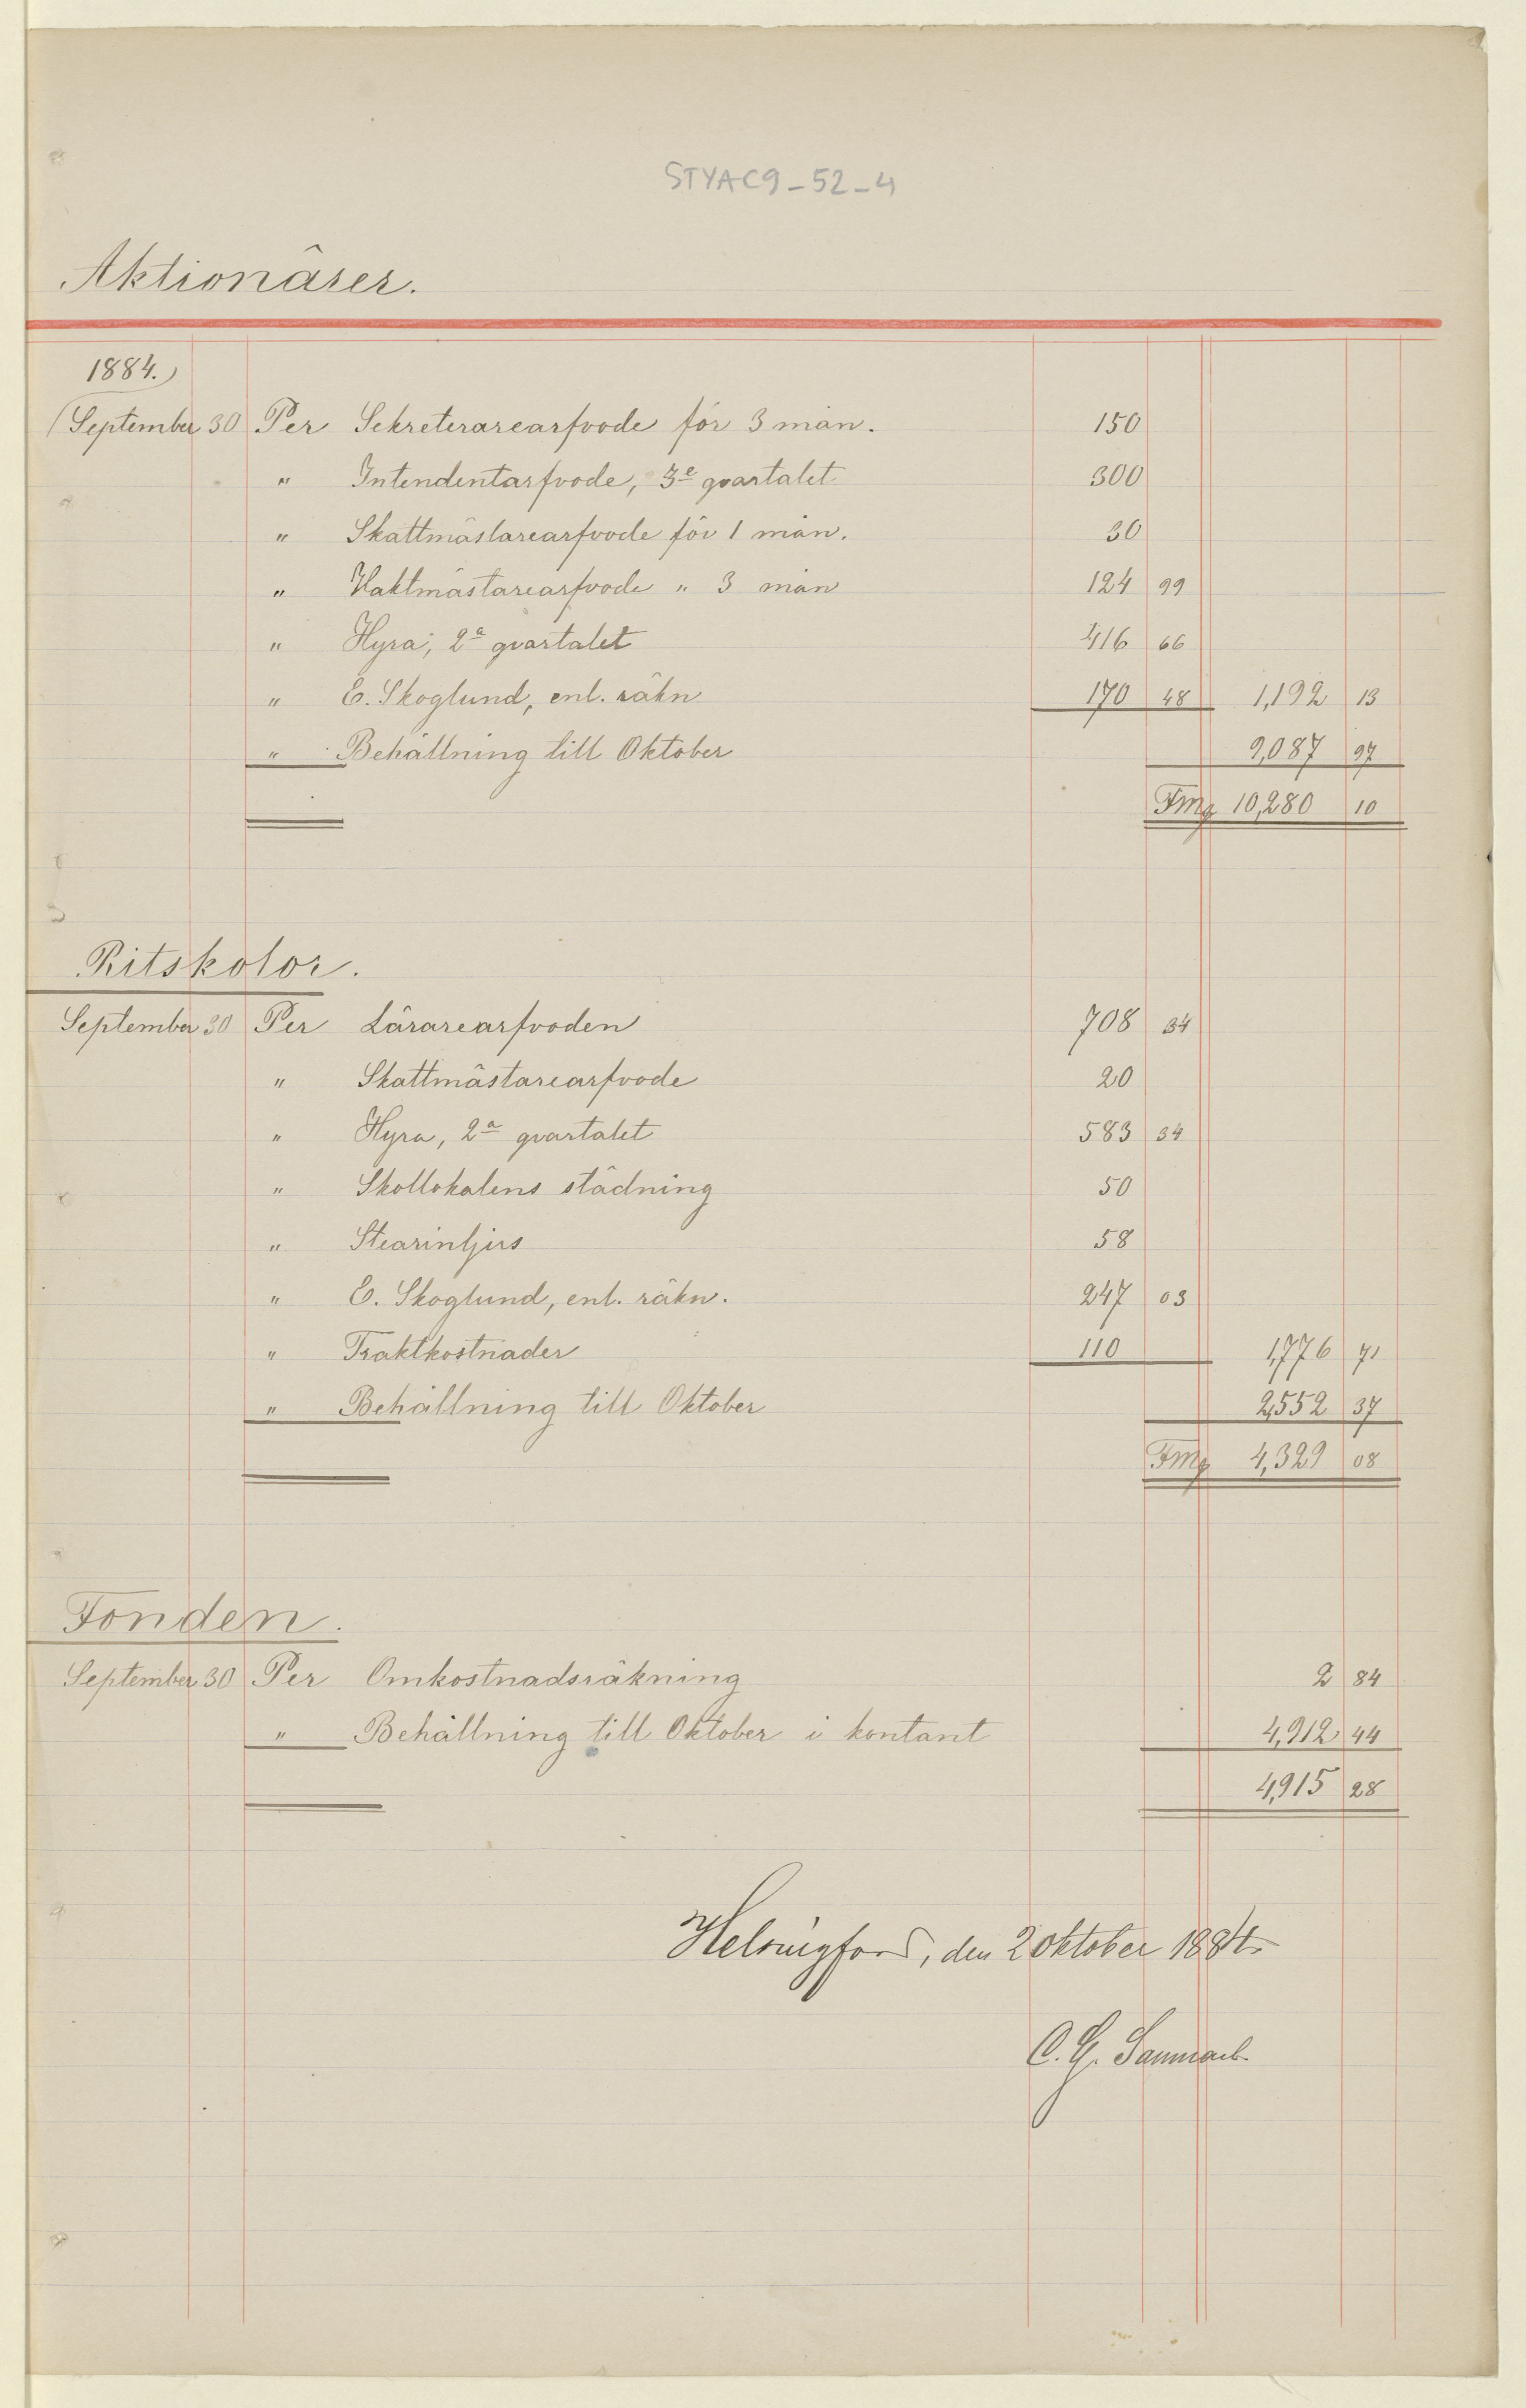 STYAC9-52-4
Aktionärer.
1884.
September 30 Per Sekreterarearfvode för 3 mån. 150
" Intendentarfvode, 3e qvartalet 300
" Skattmästarearfvode för 1 mån. 30
" Vaktmästarearfvode " 3 mån 124 99
" Hyra, 2a qvartalet 416 66
" E. Skoglund, enl. räkn 170 48 1,192 13
" Behållning till Oktober 9,087 97
Fmg 10,280 10
Ritskolor.
September 30 Per Lärarearfvoden 708 34
" Skattmästarearfvode 20
" Hyra, 2a qvartalet 583 34
" Skollokalens städning 50
" Stearinljus 58
" E. Skoglund, enl. räkn. 247 03
" Traktkostnader 110 1,776 71
" Behållning till Oktober 2,552 37
Fmg 4,329 08
Fonden.
September 30 Per Omkostnadsräkning 2 84
" Behållning till Oktober i kontant 4,912 44
4,915 28
Helsingfors, den 2 Oktober 1884.
C. G. Sanmark